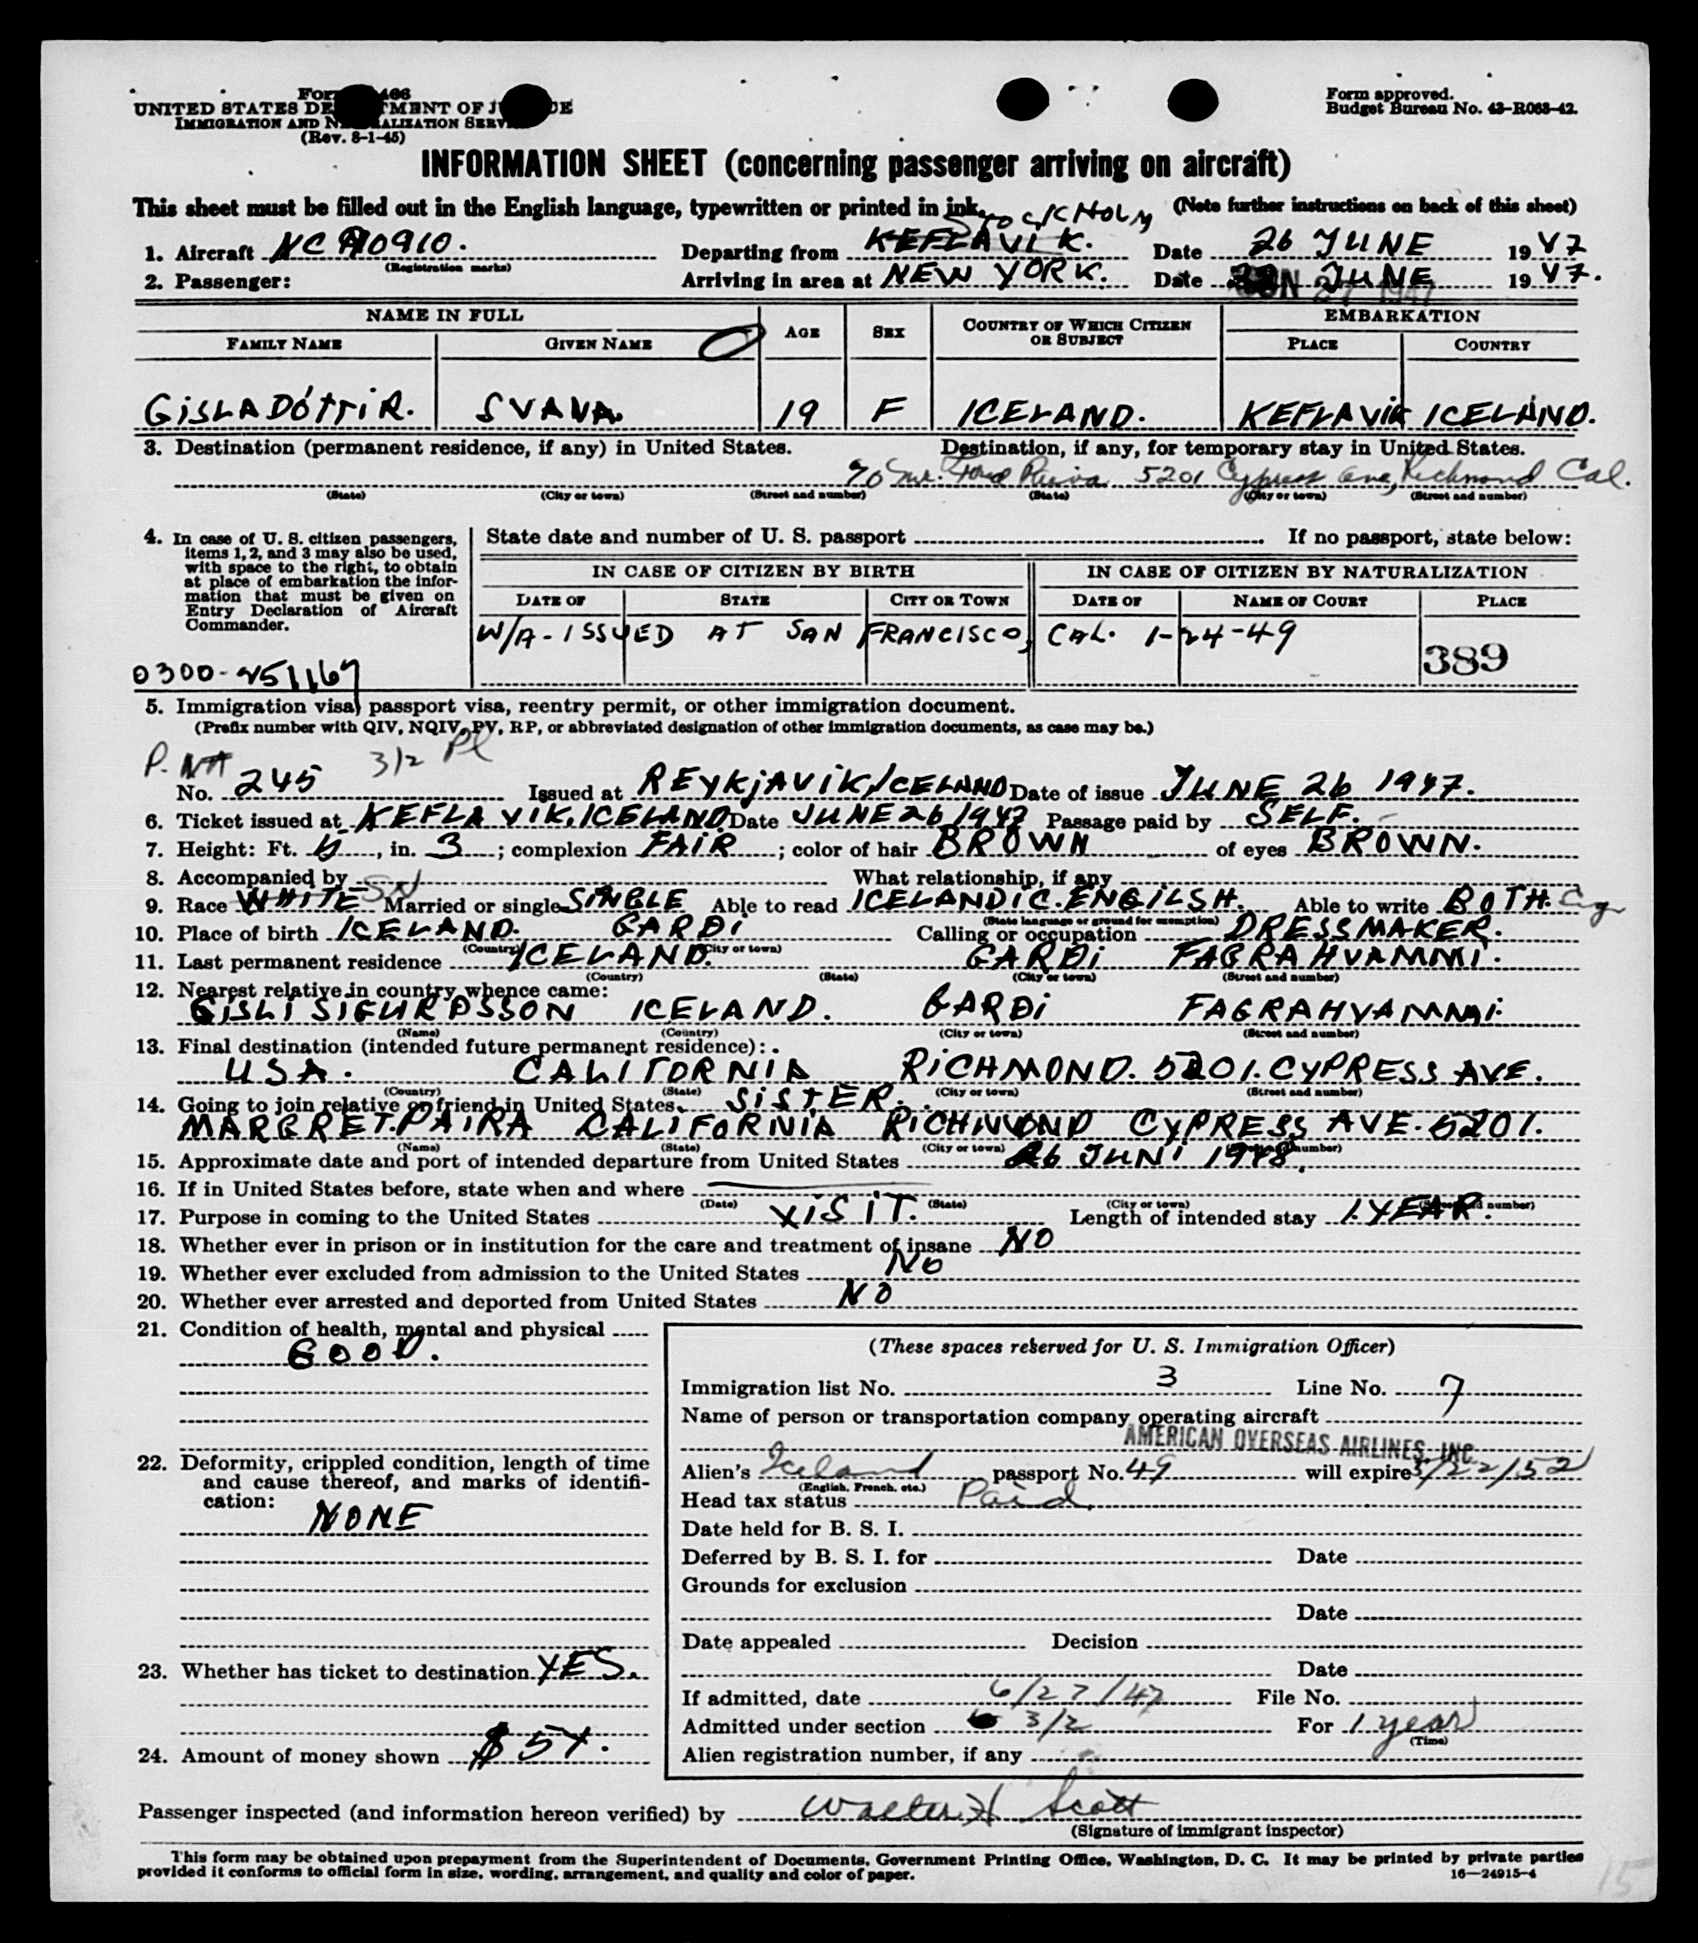 Form 466
UNITED STATES DEPARTMENT OF JUSTICE
IMMIGRATION AND NATURALIZATION SERVICE
(Rev. 8-1-45)
Form approved.
Budget Bureau No. 43-R063-42.
INFORMATION SHEET (concerning passenger arriving on aircraft)
This sheet must be filled out in the English language, typewritten or printed in ink. (Note further instructions on back of this sheet)
STOCKHOLM
1. Aircraft NC 90910. Departing from KEFLAVIK. Date 26 JUNE 1947
(Registration marks)
2. Passenger: Arriving in area at NEW YORK. Date JUNE 1947.
JUN 27 1947
NAME IN FULL AGE SEX COUNTRY OF WHICH CITIZEN OR SUBJECT EMBARKATION
FAMILY NAME GIVEN NAME PLACE COUNTRY
GISLADÓTTIR. SVAVA. 19 F ICELAND. KEFLAVIK ICELAND.
3. Destination (permanent residence, if any) in United States. Destination, if any, for temporary stay in United States.
% Mr. 5201 Cypress Ave, Richmond Cal.
(State) (City or town) (Street and number) (State) (City or town) (Street and number)
4. In case of U. S. citizen passengers, items 1, 2, and 3 may also be used, with space to the right, to obtain at place of embarkation the information that must be given on Entry Declaration of Aircraft Commander.
State date and number of U. S. passport If no passport, state below:
IN CASE OF CITIZEN BY BIRTH IN CASE OF CITIZEN BY NATURALIZATION
DATE OF STATE CITY OR TOWN DATE OF NAME OF COURT PLACE
W/A-ISSUED AT SAN FRANCISCO, CAL. 1-24-49
389
0300-251167
5. Immigration visa, passport visa, reentry permit, or other immigration document.
(Prefix number with QIV, NQIV, PV, RP, or abbreviated designation of other immigration documents, as case may be.)
3/2 Pl
No. 245 Issued at REYKJAVIK, ICELAND Date of issue JUNE 26 1947.
6. Ticket issued at KEFLAVIK, ICELAND Date JUNE 26 1947 Passage paid by SELF.
7. Height: Ft. 5, in. 3; complexion FAIR; color of hair BROWN of eyes BROWN.
8. Accompanied by What relationship, if any
SN
9. Race WHITE Married or single SINGLE Able to read ICELANDIC. ENGILSH. Able to write BOTH.
(State language or ground for exemption)
10. Place of birth ICELAND. GARDI Calling or occupation DRESSMAKER.
(Country) (City or town)
11. Last permanent residence ICELAND. GARDI FAGRAHVAMMI.
(Country) (State) (City or town) (Street and number)
12. Nearest relative in country whence came:
GISLI SIGURDSSON ICELAND. GARDI FAGRAHVAMMI.
(Name) (Country) (City or town) (Street and number)
13. Final destination (intended future permanent residence):
USA. CALIFORNIA RICHMOND. 5201. CYPRESS AVE.
(Country) (State) (City or town) (Street and number)
14. Going to join relative or friend in United States. SISTER.
MARGRET. PAIRA CALIFORNIA RICHMOND CYPRESS AVE. 5201.
(Name) (State) (City or town) (Street and number)
15. Approximate date and port of intended departure from United States 26 JUNI 1948.
16. If in United States before, state when and where
(Date) (State) (City or town) (Street and number)
17. Purpose in coming to the United States VISIT. Length of intended stay 1. YEAR.
18. Whether ever in prison or in institution for the care and treatment of insane NO
19. Whether ever excluded from admission to the United States NO
20. Whether ever arrested and deported from United States NO
21. Condition of health, mental and physical
GOOD.
22. Deformity, crippled condition, length of time and cause thereof, and marks of identification:
NONE
23. Whether has ticket to destination YES.
24. Amount of money shown $ 54.
(These spaces reserved for U. S. Immigration Officer)
Immigration list No. 3 Line No. 7
Name of person or transportation company operating aircraft
AMERICAN OVERSEAS AIRLINES, INC
Alien's Iceland passport No. 49 will expire 3/22/52
(English, French, etc.)
Head tax status Paid.
Date held for B. S. I.
Deferred by B. S. I. for Date
Grounds for exclusion
Date
Date appealed Decision
Date
If admitted, date 6/27/47 File No.
Admitted under section 3/2 For 1 year
(Time)
Alien registration number, if any
Passenger inspected (and information hereon verified) by Walter H Scott
(Signature of immigrant inspector)
This form may be obtained upon prepayment from the Superintendent of Documents, Government Printing Office, Washington, D. C. It may be printed by private parties
provided it conforms to official form in size, wording, arrangement, and quality and color of paper. 16—24915-4
15